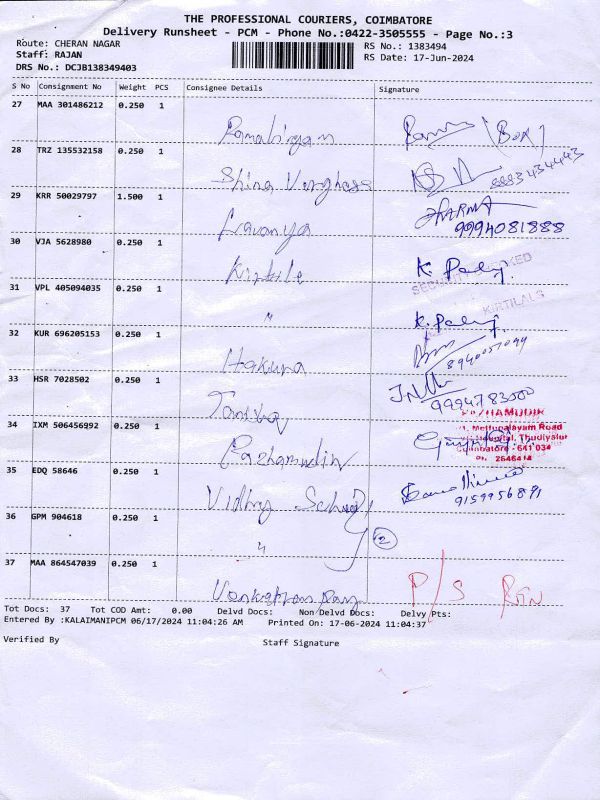 THE PROFESSIONAL COURIERS, COIMBATORE
Delivery Runsheet - PCM - Phone No.:0422-3505555 - Page No.:3
Route: CHERAN NAGAR
RS No.: 1383494
Staff: RAJAN
RS Date: 17-Jun-2024
DRS No.: DCJB138349403
S No Consignment No Weight PCS Consignee Details Signature
27 MAA 301486212 0.250 1
28 TRZ 135532158 0.250 1
(Box)
Shina Varghese 8883434443
29 KRR 50029797 1.500 1
DHARMA
Lavanya 9994081888
30 VJA 5628980 0.250 1
K.
31 VPL 405094035 0.250 1
KIRTILALS
"
K.
32 KUR 696205153 0.250 1
33 HSR 7028502 0.250 1
9994783000
34 IXM 506456992 0.250 1
Mettupalayam Road
Thudiyalur
Coimbatore - 641 034
35 EDQ 58646 0.250 1
Vidhya
36 GPM 904618 0.250 1
" 2
37 MAA 864547039 0.250 1
P/S RTN
Tot Docs: 37 Tot COD Amt: 0.00 Delvd Docs: Non Delvd Docs: Delvy Pts:
Entered By :KALAIMANIPCM 06/17/2024 11:04:26 AM Printed On: 17-06-2024 11:04:37
Verified By Staff Signature